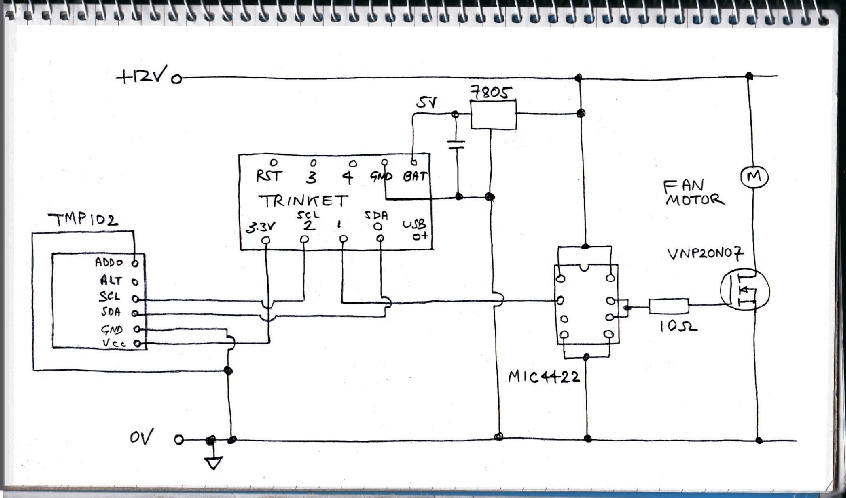 +12V
7805
5V
RST 3 4 GND BAT
TRINKET
SCL SDA
3.3V 2 1 0 USB
D+
FAN
MOTOR
M
TMP102
VNP20N07
ADD0
ALT
SCL
SDA
GND
VCC
10Ω
MIC4422
0V